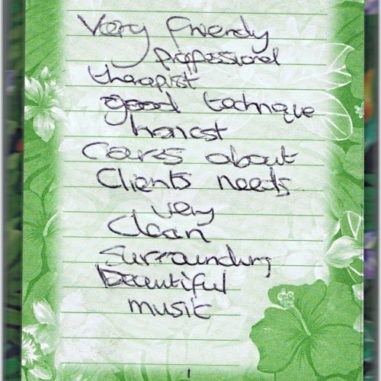 Very friendly
professional
therapist
good technique
honest
Cares about
Clients needs
very
Clean
Surrounding
beautiful
music